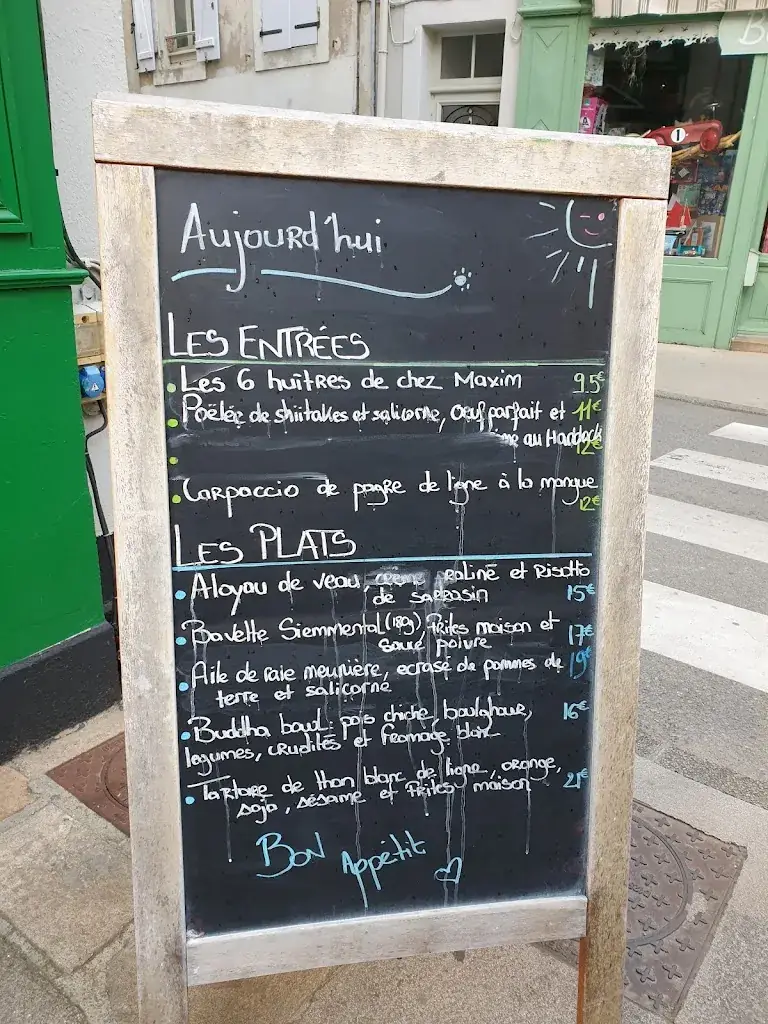 Aujourd'hui
LES ENTRÉES
Les 6 huîtres de chez Maxim 9.5€
Poêlée de shiitakes et salicorne, Oeuf parfait et 11€
au Haddock
12€
Carpaccio de pagre de ligne à la mangue
12€
LES PLATS
Aloyau de veau, creme praliné et Risotto
de sarrasin 15€
Bavette Siemmental (180g), frites maison et 17€
sauce poivre
Aile de raie meunière, ecrasé de pommes de 19€
terre et salicorne
Buddha bowl: pois chiche, boulghour, 16€
légumes, crudités et fromage blanc
Tartare de thon blanc de ligne, orange,
soja, sésame et frites maison 21€
Bon Appétit
1
B